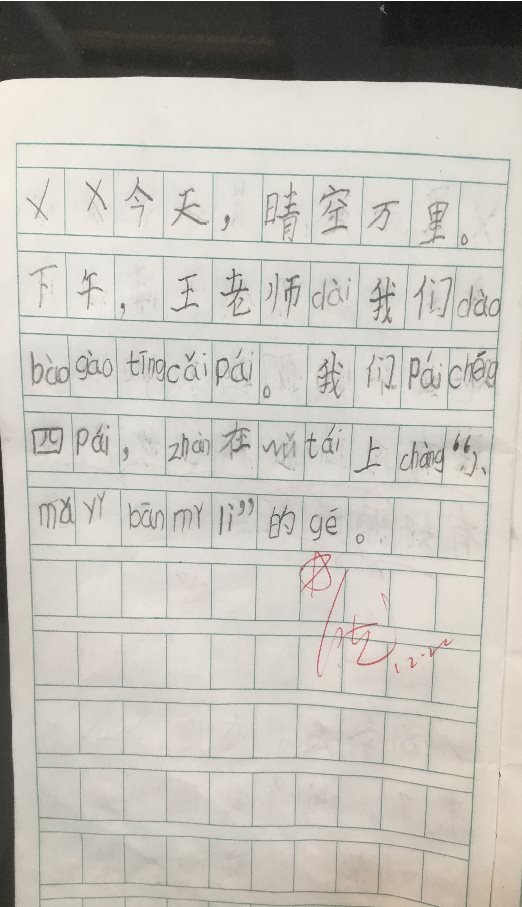 ××今天,晴空万里。
下午,王老师dài我们dào
bàogàotīngcǎipái。我们páichéng
四pái,zhàn在wǔtái上chàng“小
mǎ yǐ bān mǐ lì”的gē。
12.22